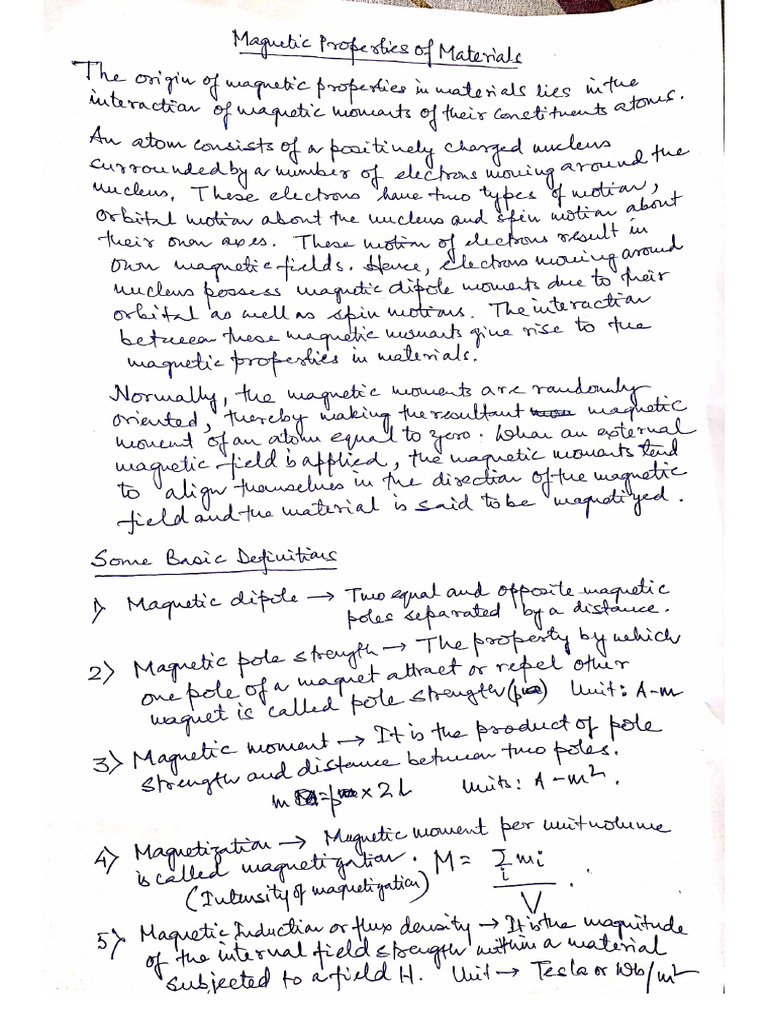 Magnetic Properties of Materials
The origin of magnetic properties in materials lies in the
interaction of magnetic moments of their constituents atoms.
An atom consists of a positively charged nucleus
surrounded by a number of electrons moving around the
nucleus. These electrons have two types of motion,
orbital motion about the nucleus and spin motion about
their own axes. These motion of electrons result in
own magnetic fields. Hence, electrons moving around
nucleus possess magnetic dipole moments due to their
orbital as well as spin motions. The interaction
between these magnetic moments give rise to the
magnetic properties in materials.
Normally, the magnetic moments are randomly
oriented, thereby making the resultant magnetic
moment of an atom equal to zero. When an external
magnetic field is applied, the magnetic moments tend
to align themselves in the direction of the magnetic
field and the material is said to be magnetized.
Some Basic Definitions
1) Magnetic dipole → Two equal and opposite magnetic
poles separated by a distance.
2) Magnetic pole strength → The property by which
one pole of a magnet attract or repel other
magnet is called pole strength (p) Unit: A-m
3) Magnetic moment → It is the product of pole
strength and distance between two poles.
m = p × 2l Units: A-m².
4) Magnetization → Magnetic moment per unit volume
is called magnetization. M = Σi mi / V.
(Intensity of magnetization)
5) Magnetic Induction or flux density → It is the magnitude
of the internal field strength within a material
subjected to a field H. Unit → Tesla or Wb/m²